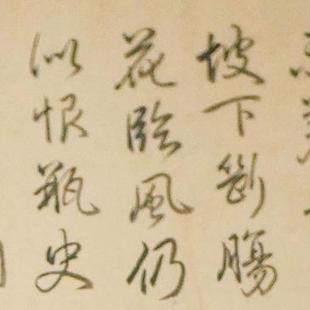 坡下斷腸
花臨風仍
似恨瓶史